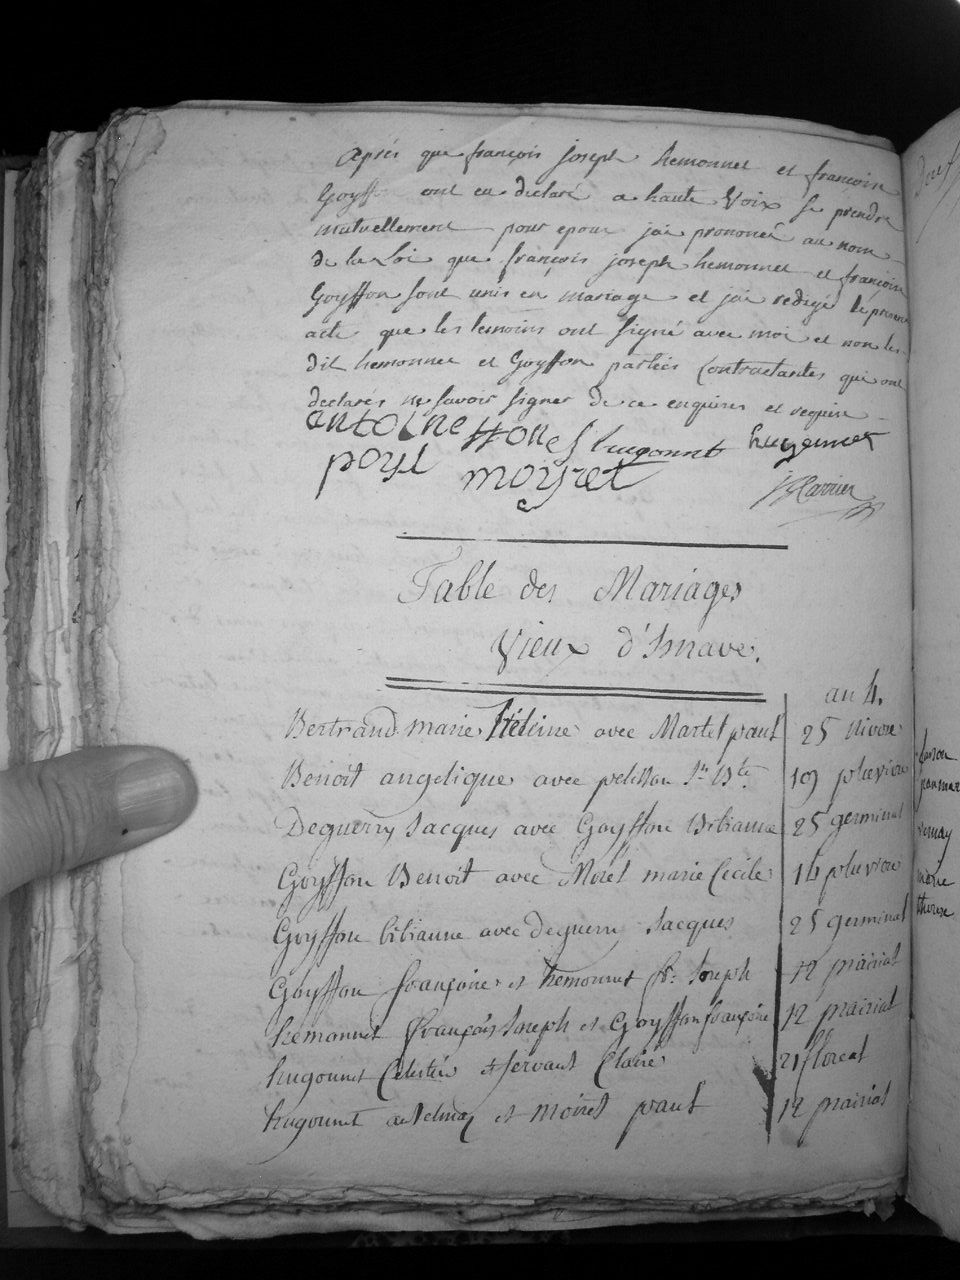 Après que françois joseph hemonnet et françoise
Goyffon ont eu declaré a haute Voix se prendre
mutuellement pour epoux jai prononcé au nom
de la Loi que françois joseph hemonnet et françoise
Goyffon sont unis en mariage et jai redigé le present
acte que les temoins ont signé avec moi et non les
dit hemonnet et Goyffon parties Contractantes qui ont
declarés ne savoir signer de ce enquires et requise
antoine hugonnet
poyl moiret
Table des Mariages
Vieux d'Isnave.
au 4.
Bertrand marie Héleine avec Martel paul 25 Nivose
Benoit angelique avec pelisson Jn Bte 19 pluviose
Deguerry Jacques avec Goyffon Bibianne 25 germinal
Goyffon Benoit avec Morel marie Cécile 14 pluviose
Goyffon bibianne avec deguerry Jacques 25 germinal
Goyffon françoise et hemonnet fs. Joseph 12 prairial
hemonnet françois Joseph et Goyffon françoise 12 prairial
hugonnet Celestin et servant Claire 21 floreal
hugonnet et moiret paul 12 prairial
jeanmar
marie
therese